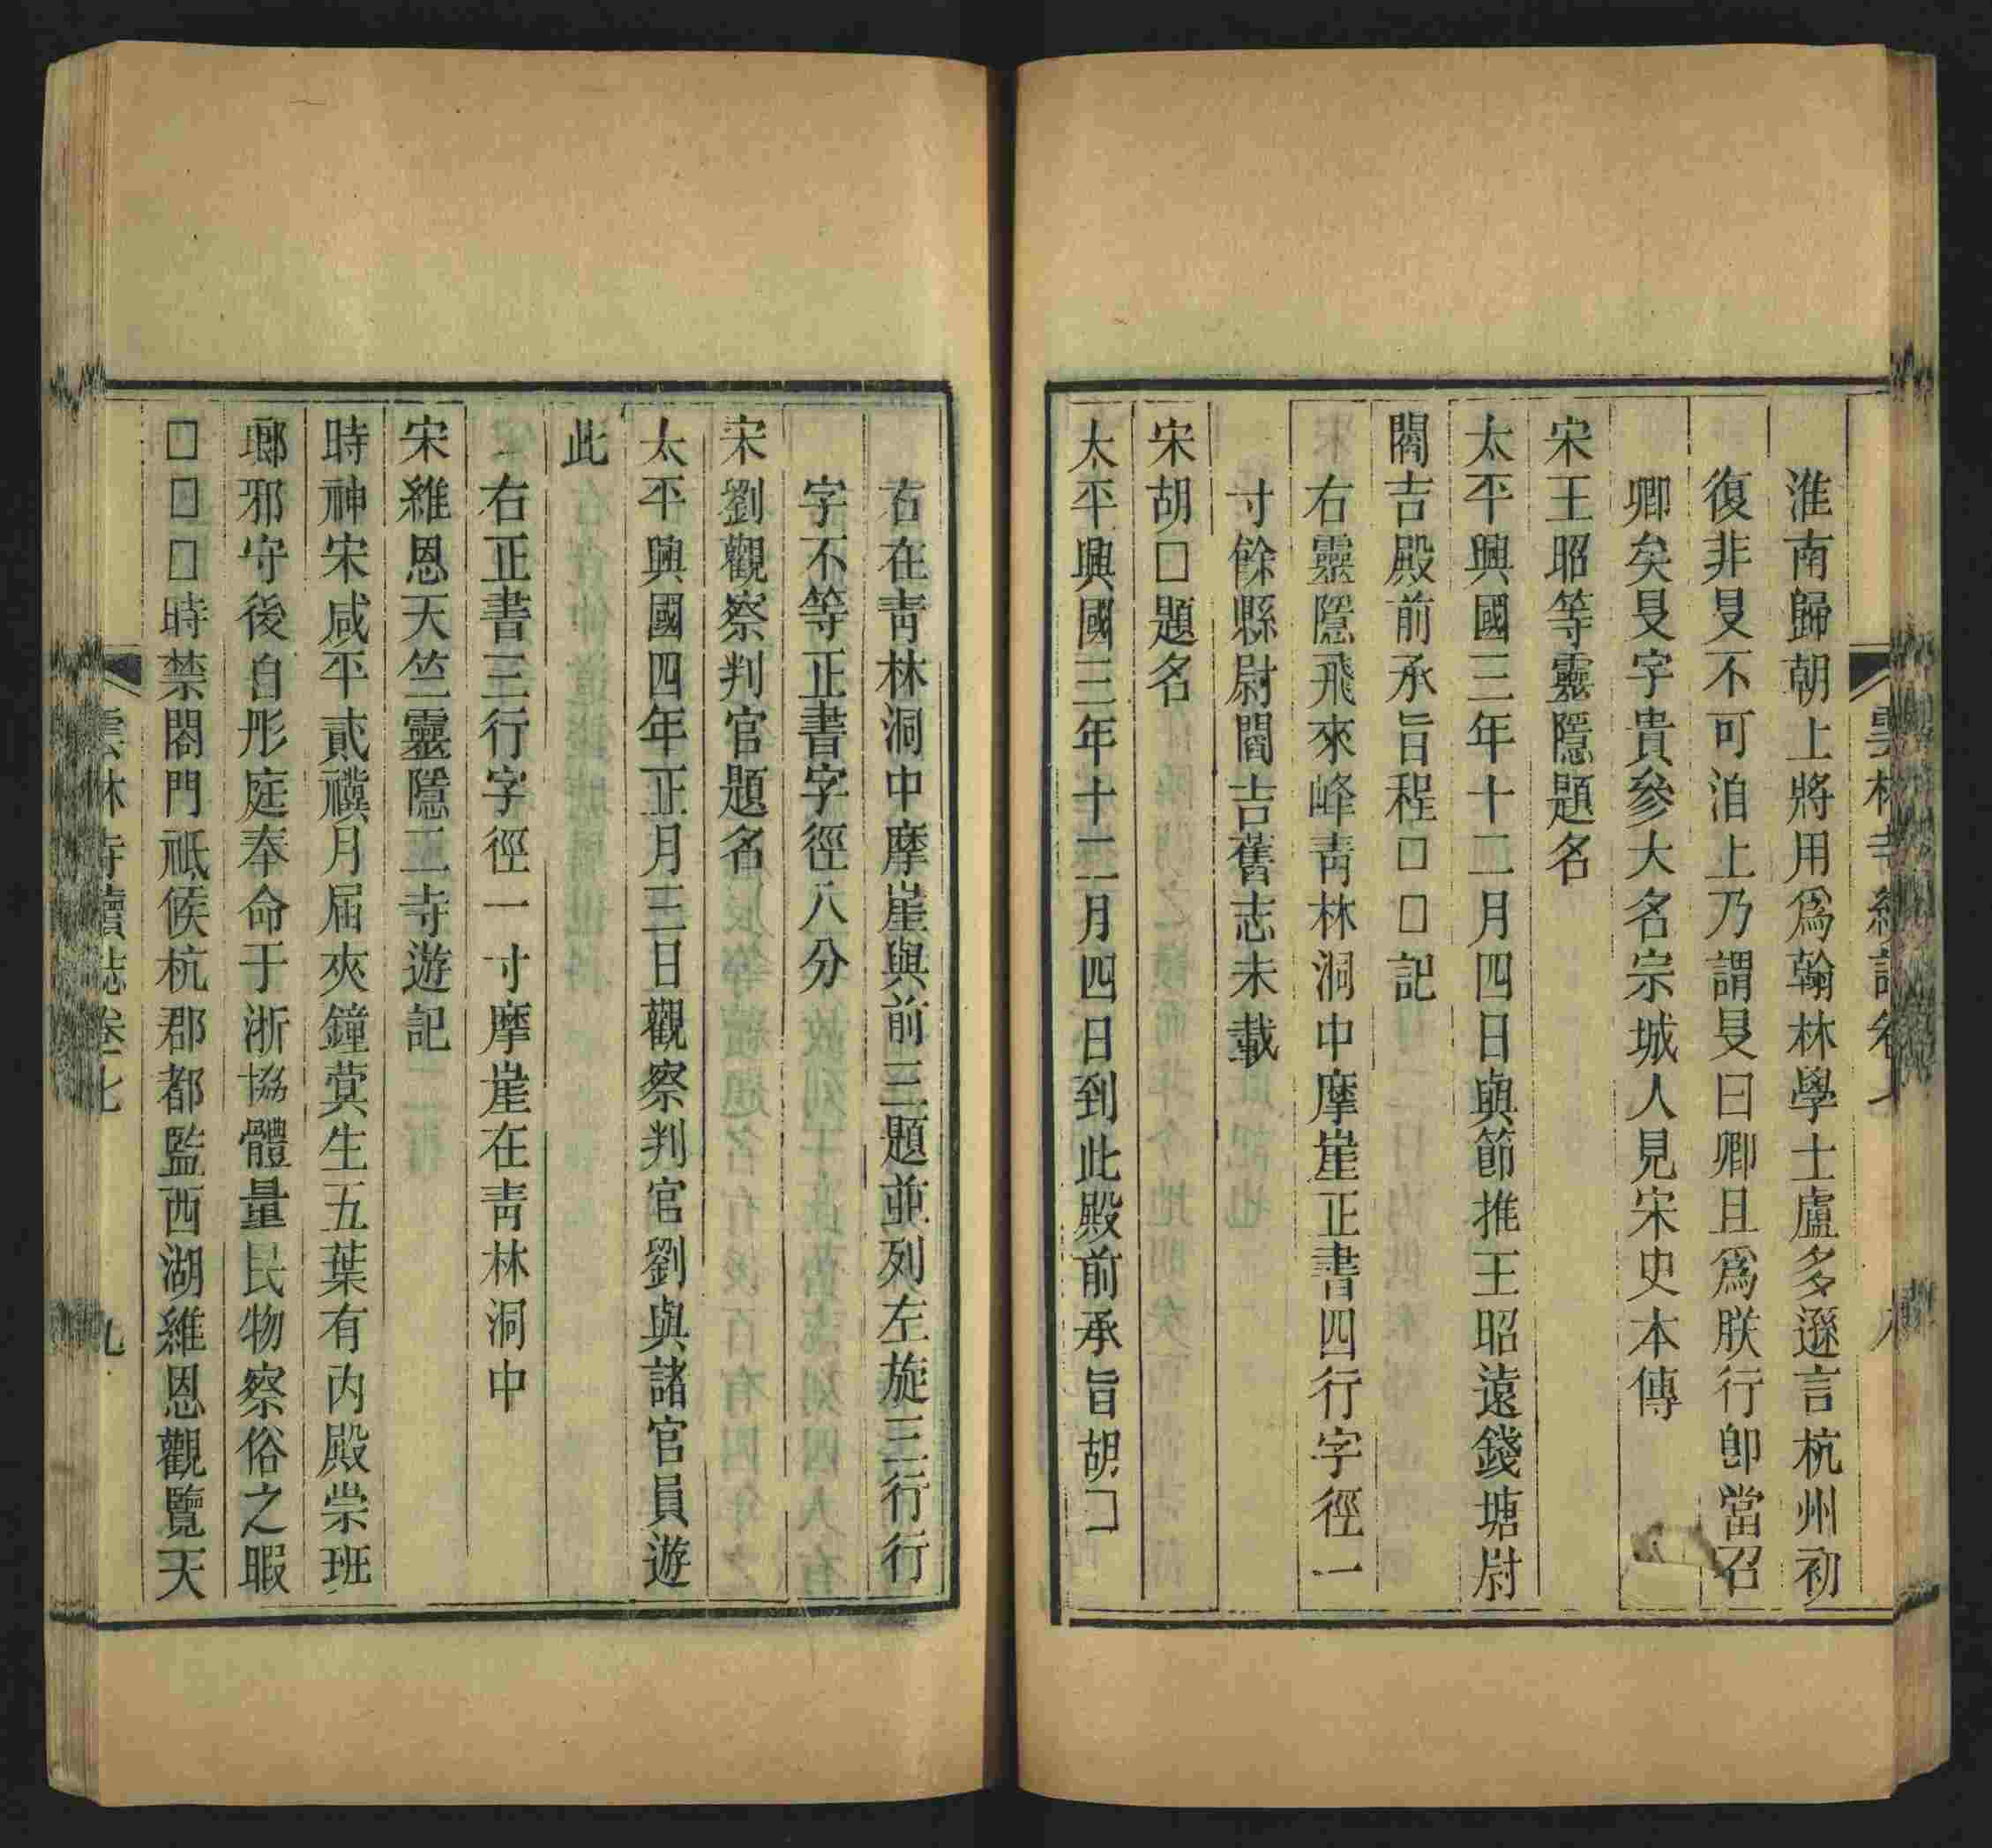 雲林寺續誌卷七 八
淮南歸朝上將用爲翰林學士盧多遜言杭州初
復非旻不可洎上乃謂旻曰卿且爲朕行卽當召
卿矣旻字貴參大名宗城人見宋史本傳
宋王昭等靈隱題名
太平興國三年十二月四日與節推王昭遠錢塘尉
閻吉殿前承旨程□□記
右靈隱飛來峰靑林洞中摩崖正書四行字徑一
寸餘縣尉閻吉舊志未載
宋胡□題名
太平興國三年十二月四日到此殿前承旨胡□
右在靑林洞中摩崖與前三題並列左旋三行行
字不等正書字徑八分
宋劉觀察判官題名
太平興國四年正月三日觀察判官劉與諸官員遊
此
右正書三行字徑一寸摩崖在靑林洞中
宋維恩天竺靈隱二寺遊記
時神宋咸平貳禩月屆夾鐘蓂生五葉有内殿崇班
瑯邪守後自彤庭奉命于浙協體量民物察俗之暇
□□□時禁閤門祗候杭郡都監西湖維恩觀覽天
雲林寺續誌卷七 九